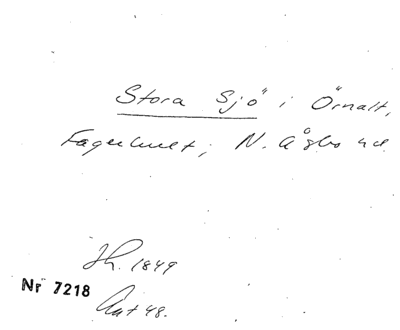 Stora Sjö i Örnalt,
Fagerhult, N. Åsbo hd.
Jh. 1849
Nr 7218
Ant 48.